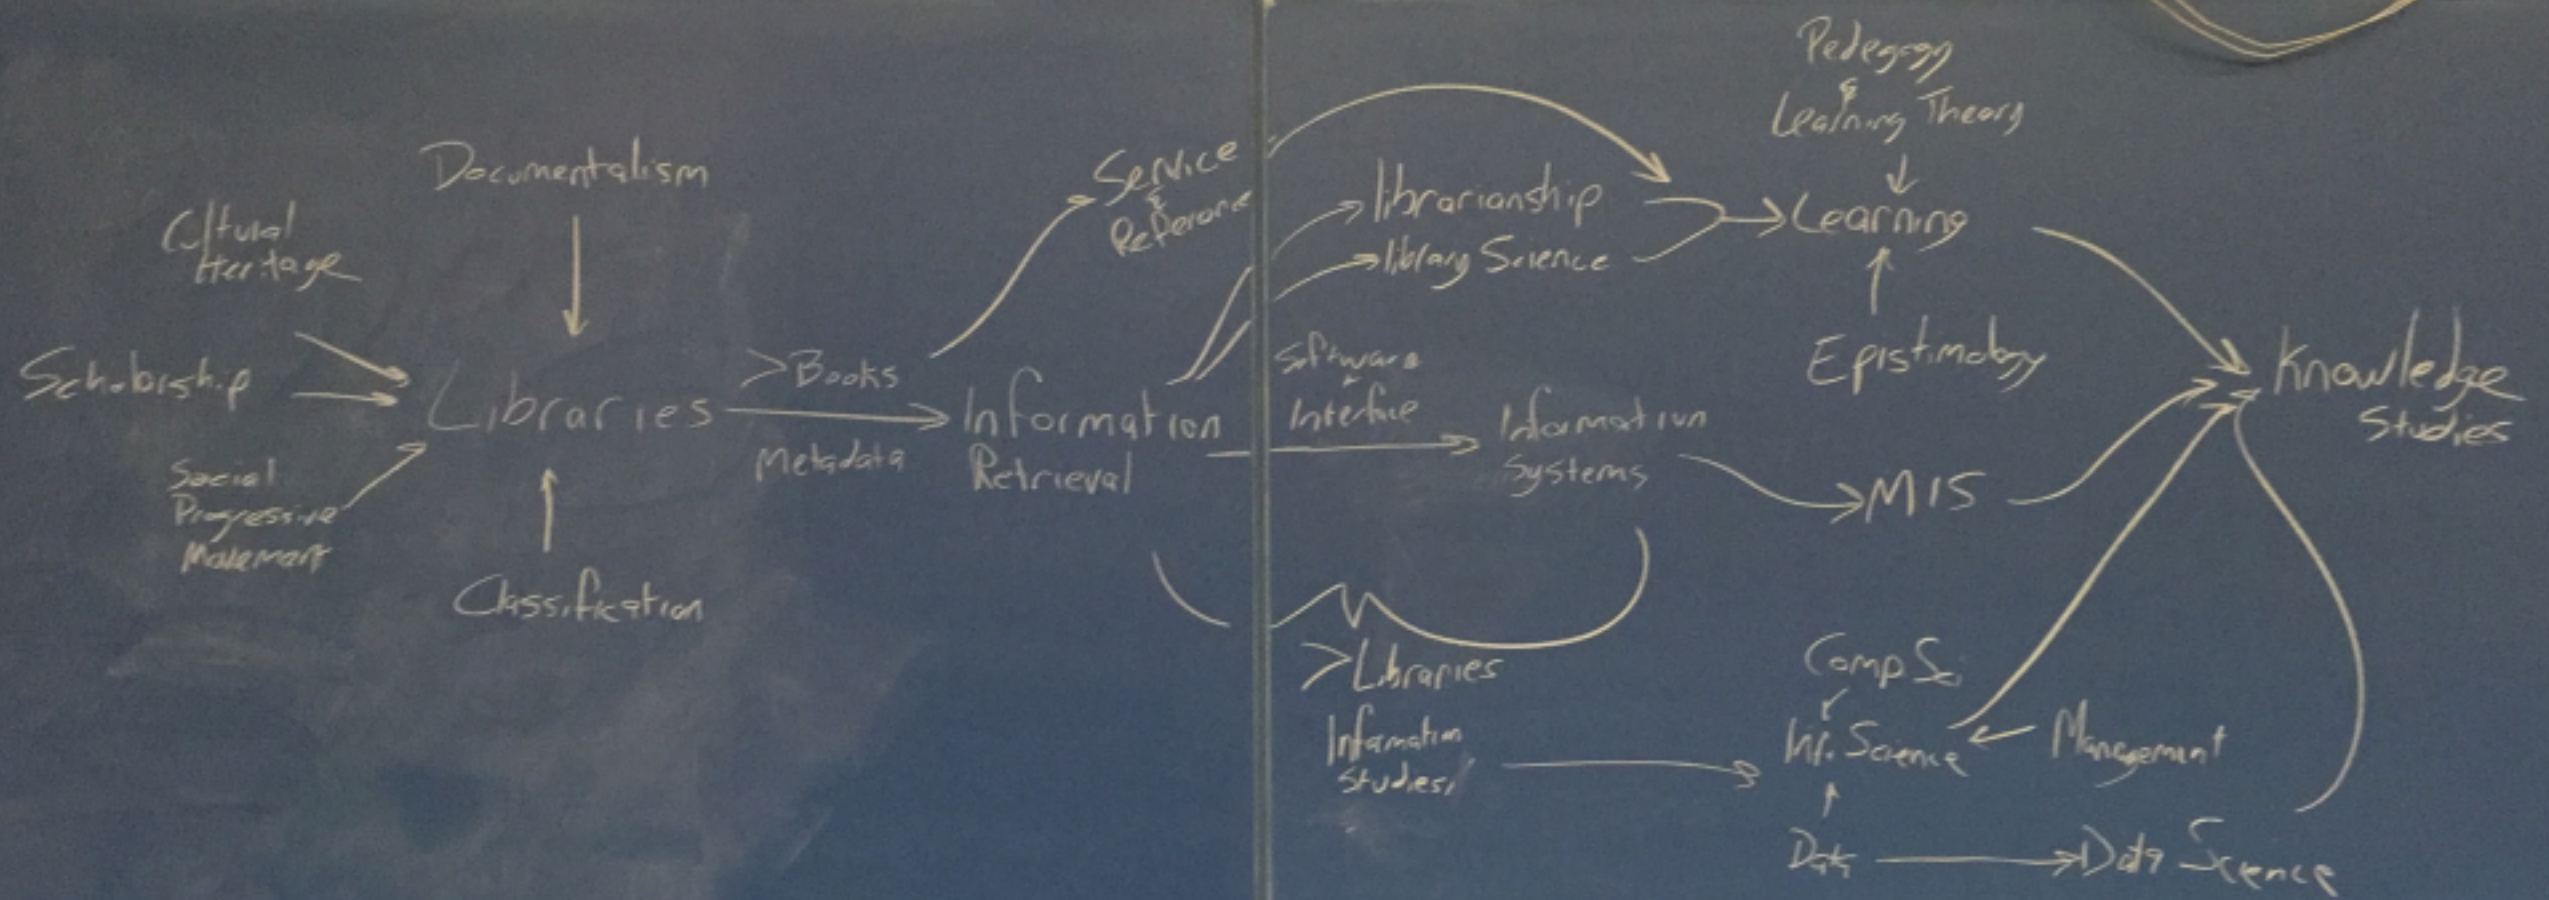 Cultural
Heritage
Scholarship
Social
Progressive
Movement
Documentalism
Libraries
Classification
>Books
Metadata
Service
&
Reference
Information
Retrieval
librarianship
library Science
Software
Interface
Information
Systems
>Libraries
Information
Studies
Pedegogy
&
Learning Theory
Learning
Epistimology
MIS
Comp Sci
Inf. Science
Management
Data
Data Science
Knowledge
Studies